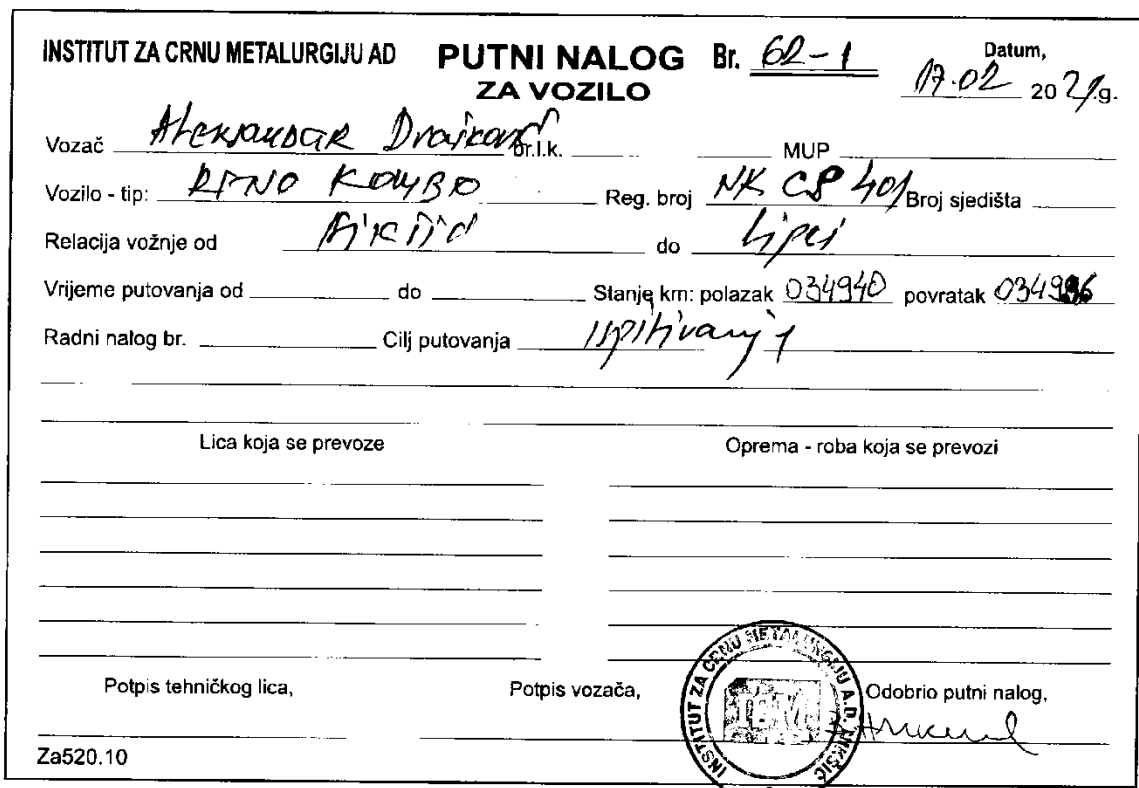 INSTITUT ZA CRNU METALURGIJU AD
PUTNI NALOG Br. 62-1
ZA VOZILO
Datum,
17.02 2021.g.
Vozač Aleksandar Br.l.k. MUP
Vozilo - tip: Reg. broj NK CP 401 Broj sjedišta
Relacija vožnje od do
Vrijeme putovanja od do Stanje km: polazak 034940 povratak
Radni nalog br. Cilj putovanja Ispitivanje
Lica koja se prevoze Oprema - roba koja se prevozi
Potpis tehničkog lica, Potpis vozača, Odobrio putni nalog,
INSTITUT ZA CRNU METALURGIJU A.D. NIKŠIĆ
Za520.10